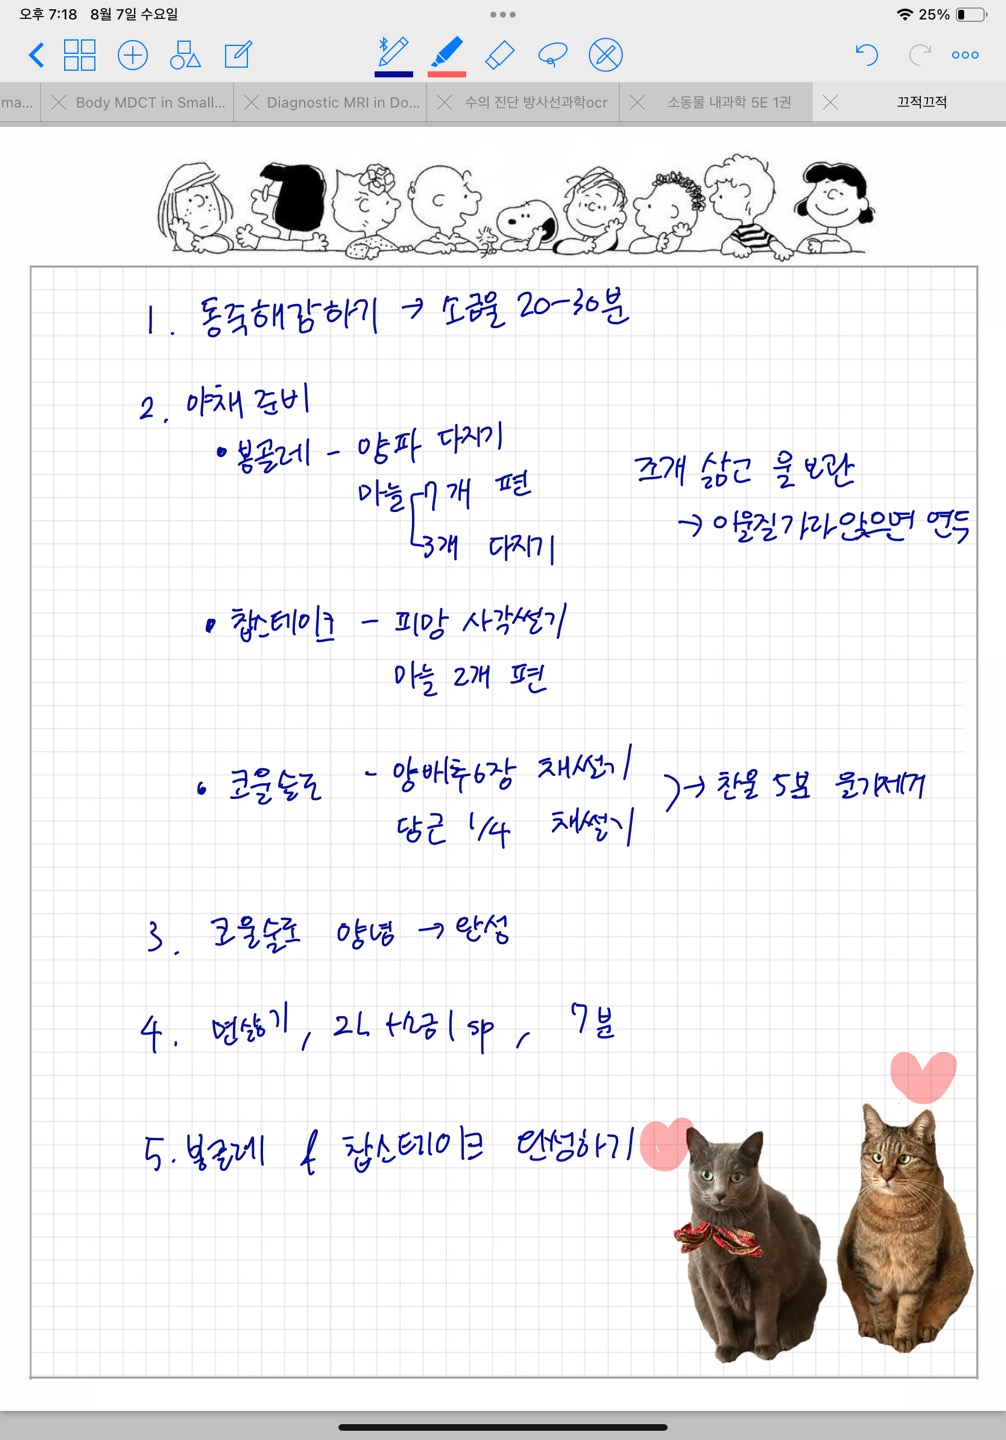 오후 7:18 8월 7일 수요일
25%
ma...
Body MDCT in Small...
Diagnostic MRI in Do...
수의 진단 방사선과학ocr
소동물 내과학 5E 1권
끄적끄적
1. 동죽해감하기 → 소금물 20-30분
2. 야채 준비
• 봉골레 - 양파 다지기
마늘 7개 편
3개 다지기
조개 삶고 물 보관
→ 이물질 가라앉으면 면수
• 찹스테이크 - 피망 사각썰기
마늘 2개 편
• 코울슬로 - 양배추 6장 채썰기
당근 1/4 채썰기
→ 찬물 5분 물기제거
3. 코울슬로 양념 → 완성
4. 면삶기, 2L +소금 1 sp, 7분
5. 봉골레 & 찹스테이크 완성하기